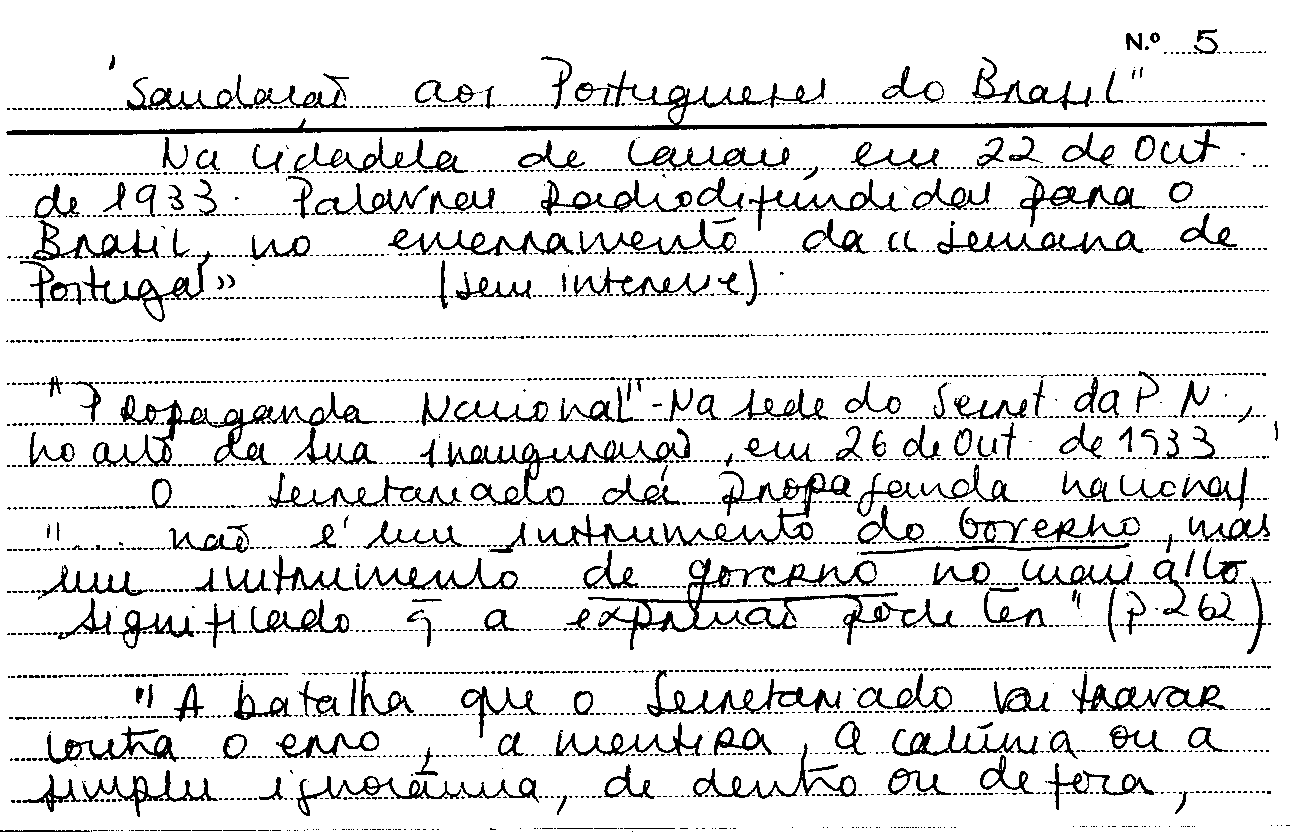 N.º 5
"Saudação aos Portugueses do Brasil"
Na Cidadela de Cascais, em 22 de Out.
de 1933. Palavras radiodifundidas para o
Brasil, no encerramento da «Semana de
Portugal» (sem interesse).
"Propaganda Nacional" - Na sede do Secret. da P.N.,
no acto da sua inauguração, em 26 de Out. de 1933
O Secretariado da propaganda nacional
"... não é um instrumento do Governo, mas
um instrumento de governo no mais alto
significado q̄ a expressão pode ter" (p.262)
"A batalha que o Secretariado vai travar
contra o erro, a mentira, a calúnia ou a
simples ignorância, de dentro ou de fora,